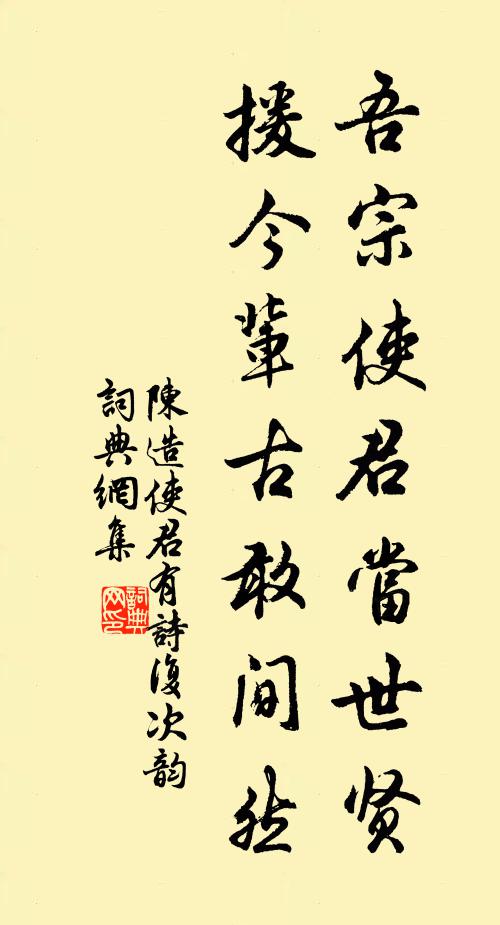 吾宗使君當世贤
援今輩古敢间然
陳造使君有詩復次韵
詞典網集
詞典网印